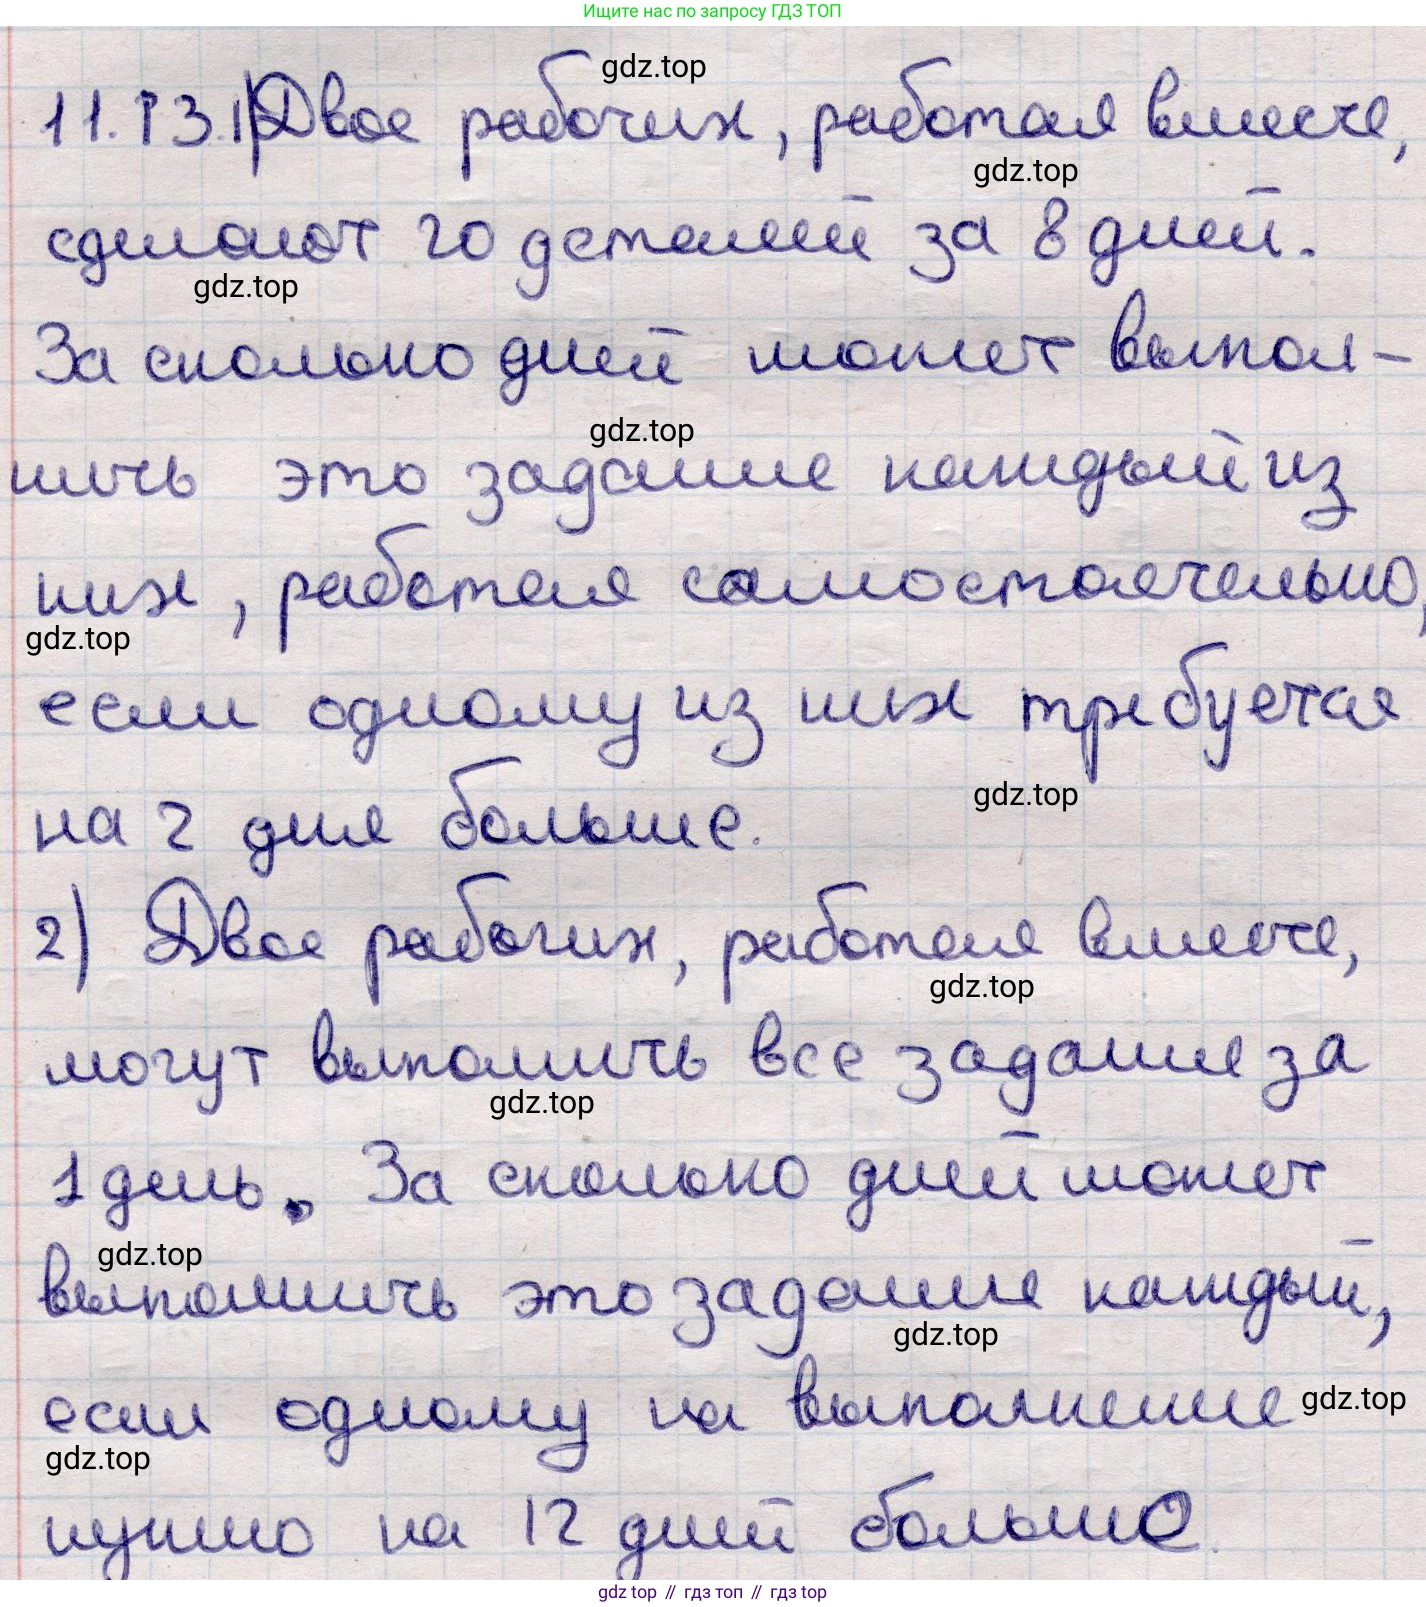 Ищите нас по запросу ГДЗ ТОП
gdz.top
11.13.1) Двое рабочих, работая вместе,
gdz.top
сделают 20 деталей за 8 дней.
gdz.top
За сколько дней может выпол-
gdz.top
нить это задание каждый из
них, работая самостоятельно,
gdz.top
если одному из них требуется
gdz.top
на 2 дня больше.
2) Двое рабочих, работая вместе,
gdz.top
могут выполнить все задание за
gdz.top
1 день. За сколько дней может
gdz.top
выполнить это задание каждый,
gdz.top
если одному на выполнение
gdz.top
gdz.top
нужно на 12 дней больше.
gdz top // гдз топ // гдз top